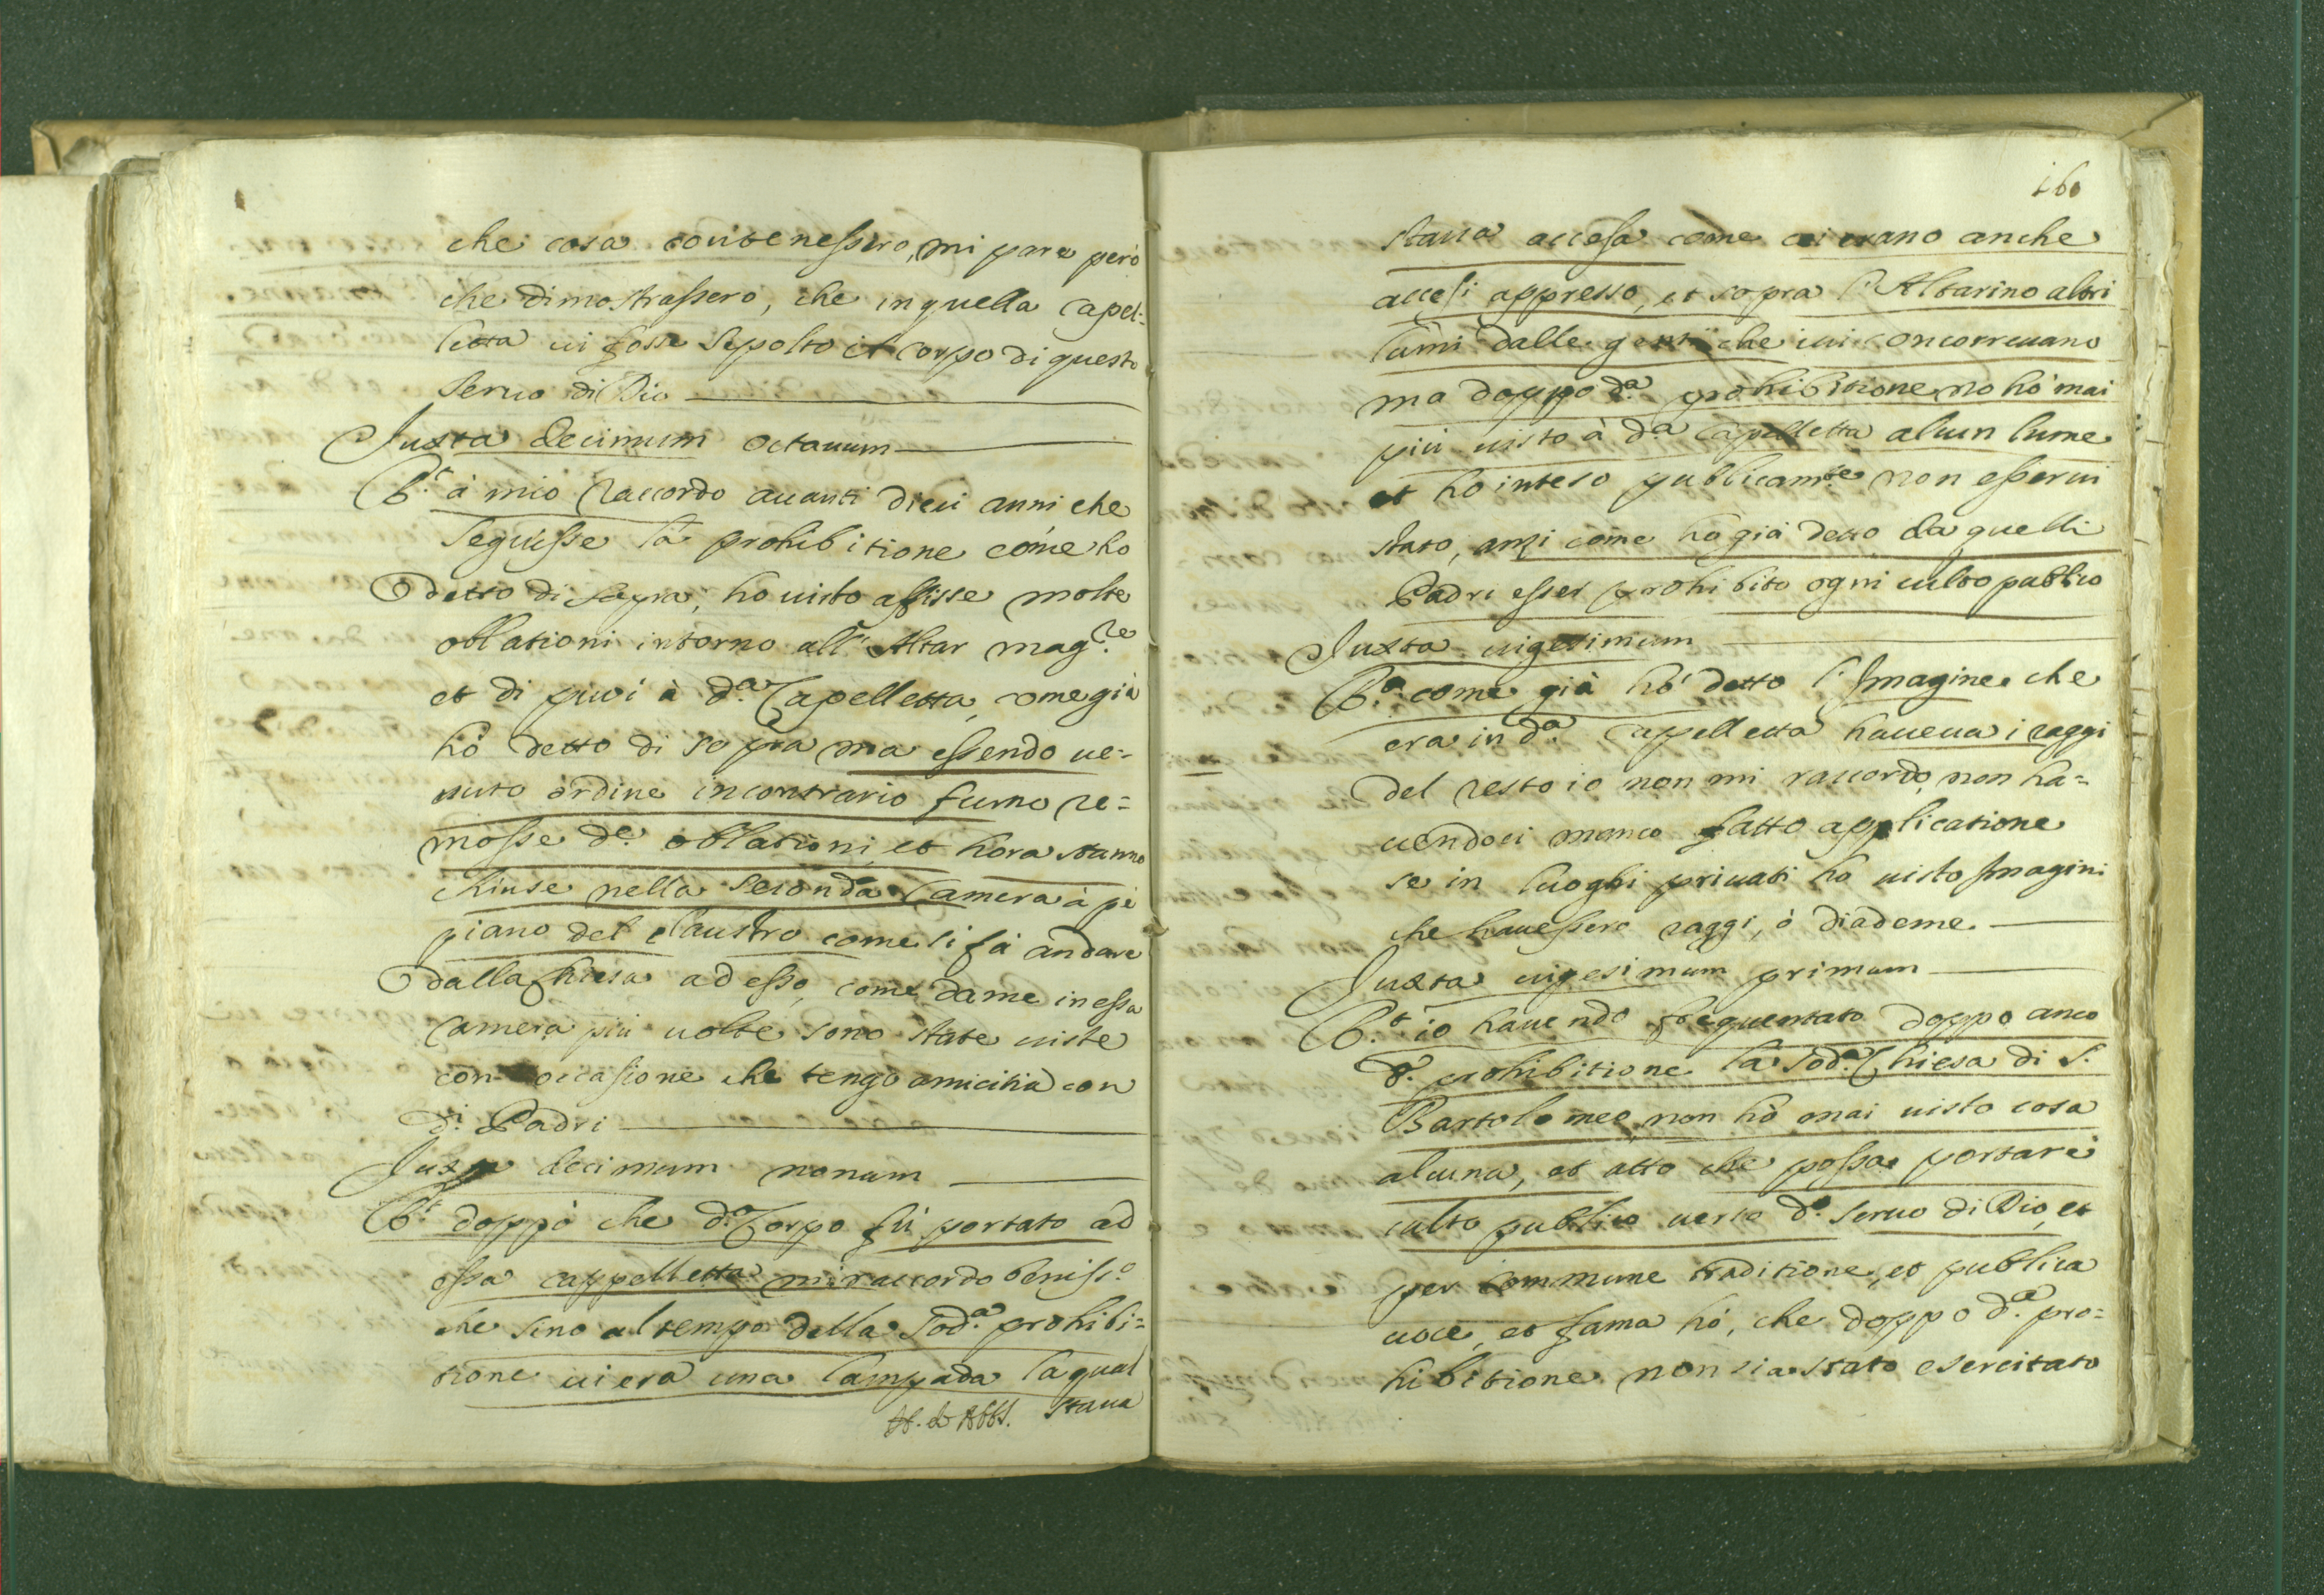 che cosa contenessero, mi pare però
che dimostrassero, che in quella Capel:
letta ui fosse sepolto il corpo di questo
seruo di Dio
Juxta decimum octauum
R.t à mio raccordo auanti dieci anni che
seguisse la prohibitione come ho
detto di sopra, ho uisto affisse molte
oblationi intorno all'Altar mag.re
et di piui à d.a Capelletta, come già
hò detto di sopra ma essendo ue=
nuto ordine incontrario furno re=
mosse d.e oblationi, et hora stanno
chiuse nella seconda Camera à pè
piano del claustro come si fà andare
dalla Chiesa ad esso, come da me in essa
Camera più uolte sono state uiste
con occasione che tengo amicitia con
d.i Padri
Juxta decimum nonum
R.t doppò che d.o Corpo fù portato ad
essa cappelletta mi raccordo beniss.o
che sino al tempo della sod.a prohibi=
tione ui era una lampada la qual
staua
160
staua accesa come ui erano anche
accesi appresso, et sopra l'Altarino altri
lumi dalle genti che iui concorreuano
ma doppo d.a prohibitione nò hò mai
più uisto à d.a Capelletta alcun lume
et ho inteso publicam.te non esserui
stato, anzi come hò già detto da quelli
Padri esser prohibito ogni culto publico
Juxta uigesimum
R.t come già hò detto l'Imagine che
era in d.a Capelletta haueua i raggi
del resto io non mi raccordo, non ha=
uendoci manco fatto applicatione
se in luoghi priuati ho uisto Imagini
che hauessero raggi, ò diademe.
Juxta uigesimum primum
R.t io hauendo frequentato doppo anco
d.a prohibitione la sod.a Chiesa di S.
Bartolomeo, non hò mai uisto cosa
alcuna, et atto che possa portare
culto publico uerso d.o seruo di Dio, et
per commune traditione, et publica
uoce, et fama hò, che doppo d.a pro=
hibitione non sia stato esercitato